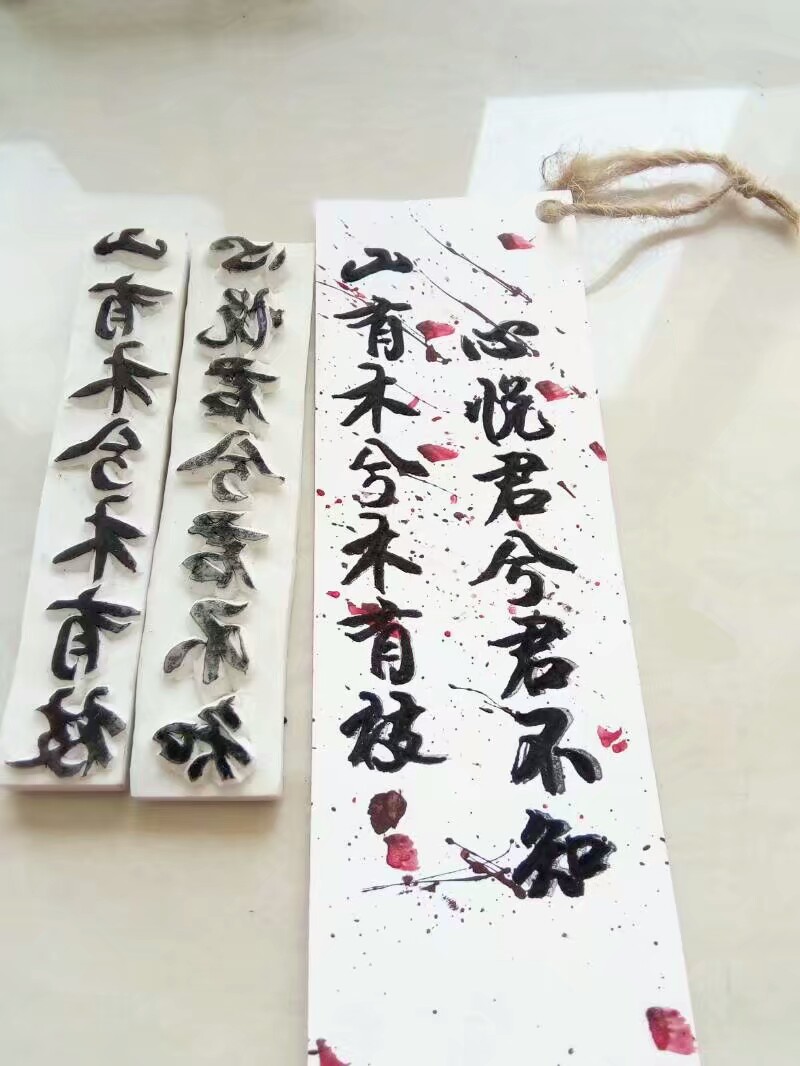 山有木兮木有枝
心悦君兮君不知
山有木兮木有枝
心悦君兮君不知